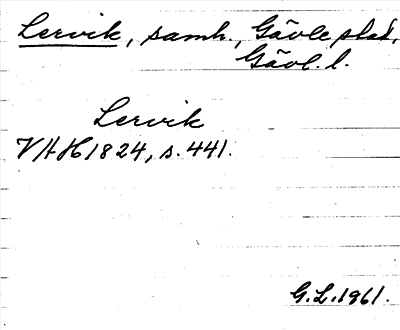 Lervik, samh., Gävle stad,
Gävl. l.
Lervik
VAH 1824, s. 441.
G.L. 1961.